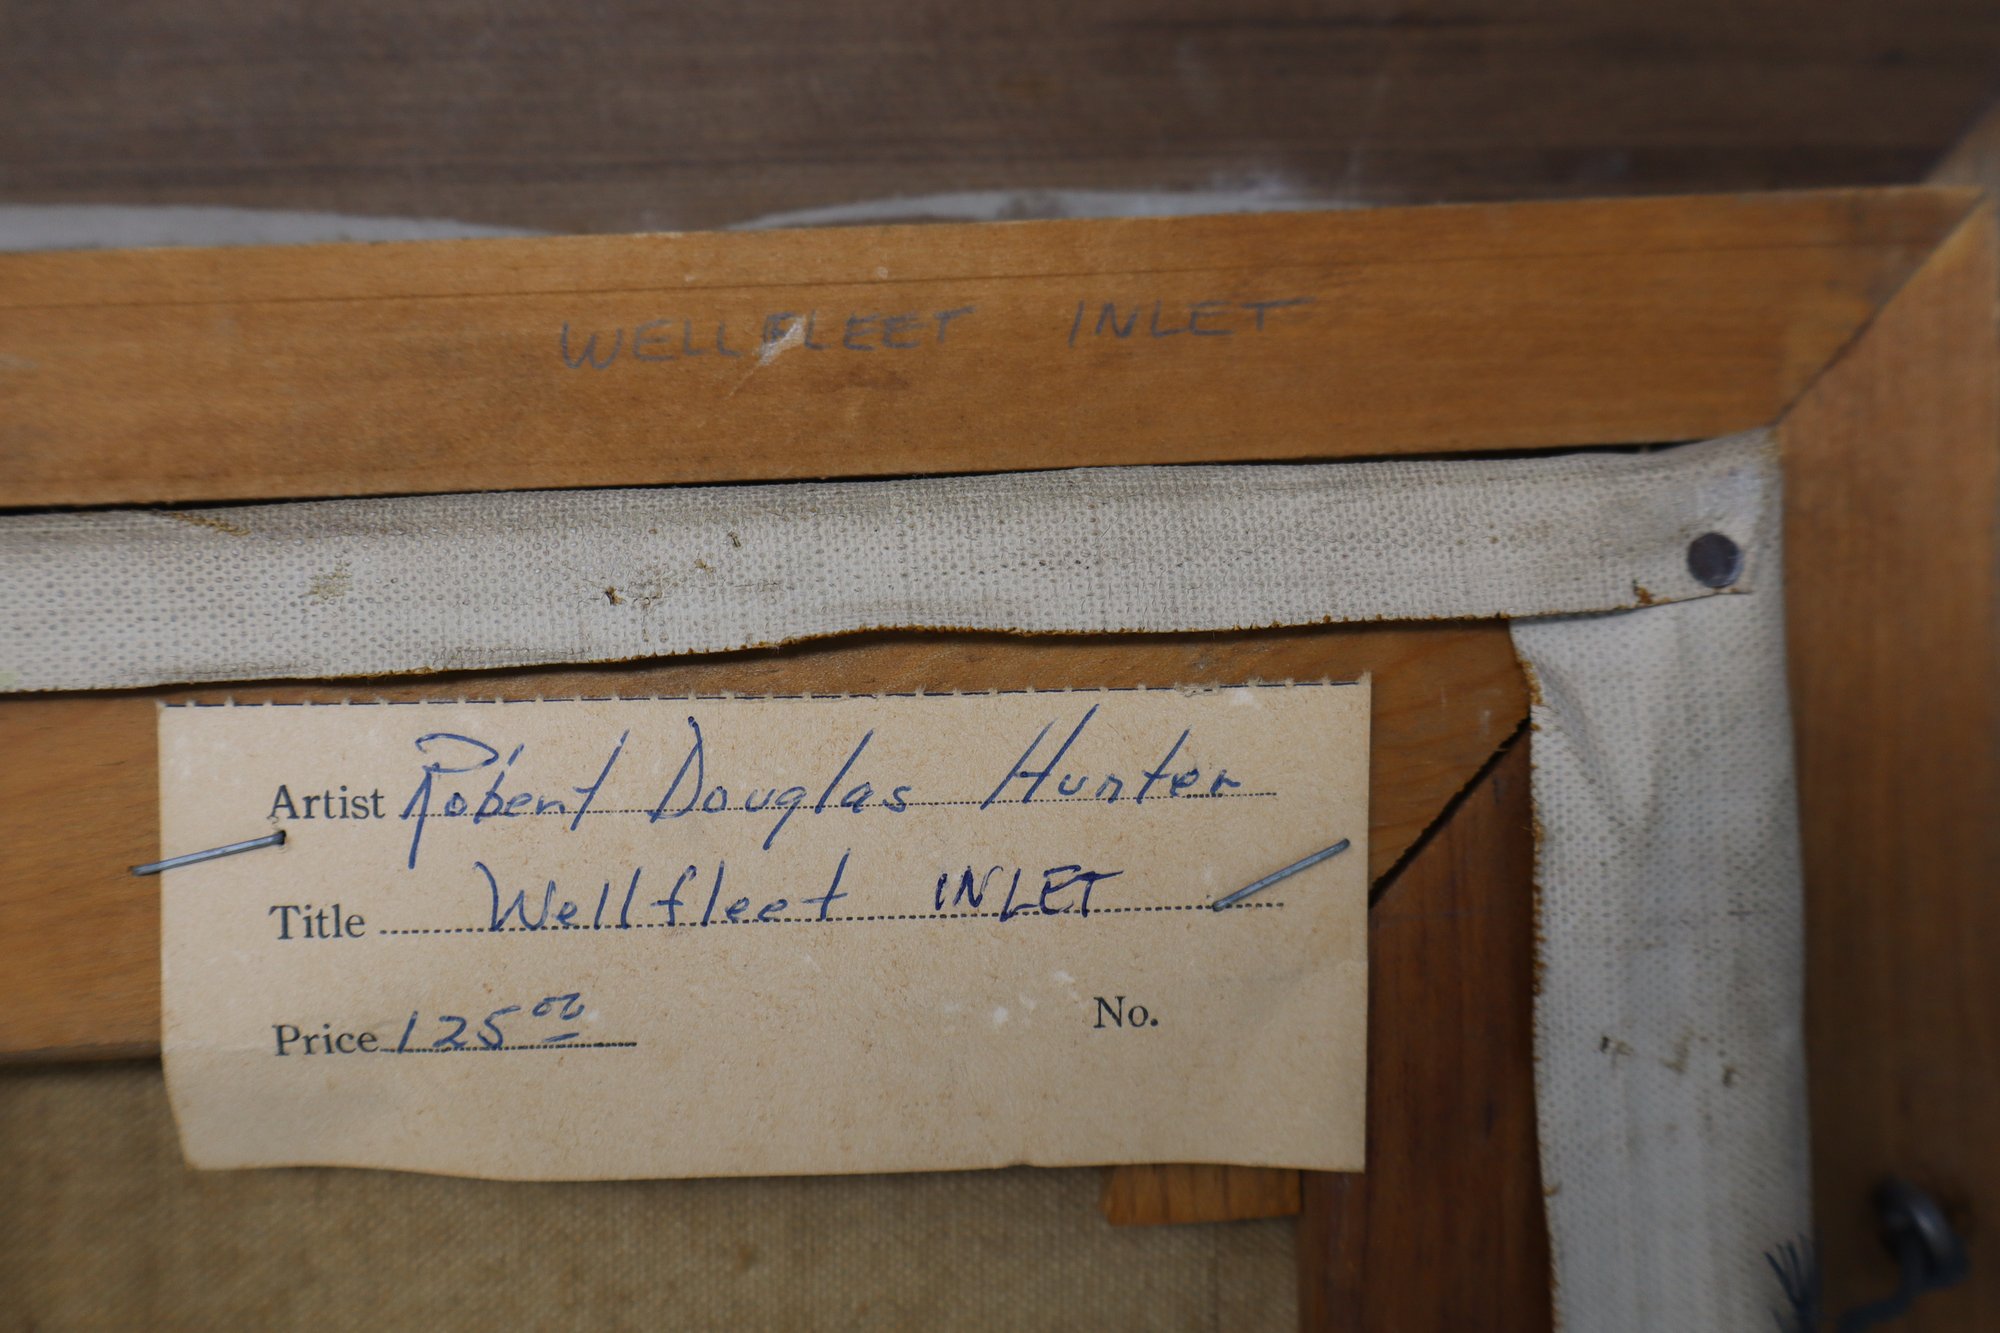 WELLFLEET INLET
Artist Robert Douglas Hunter
Title Wellfleet INLET
Price 125.00 No.